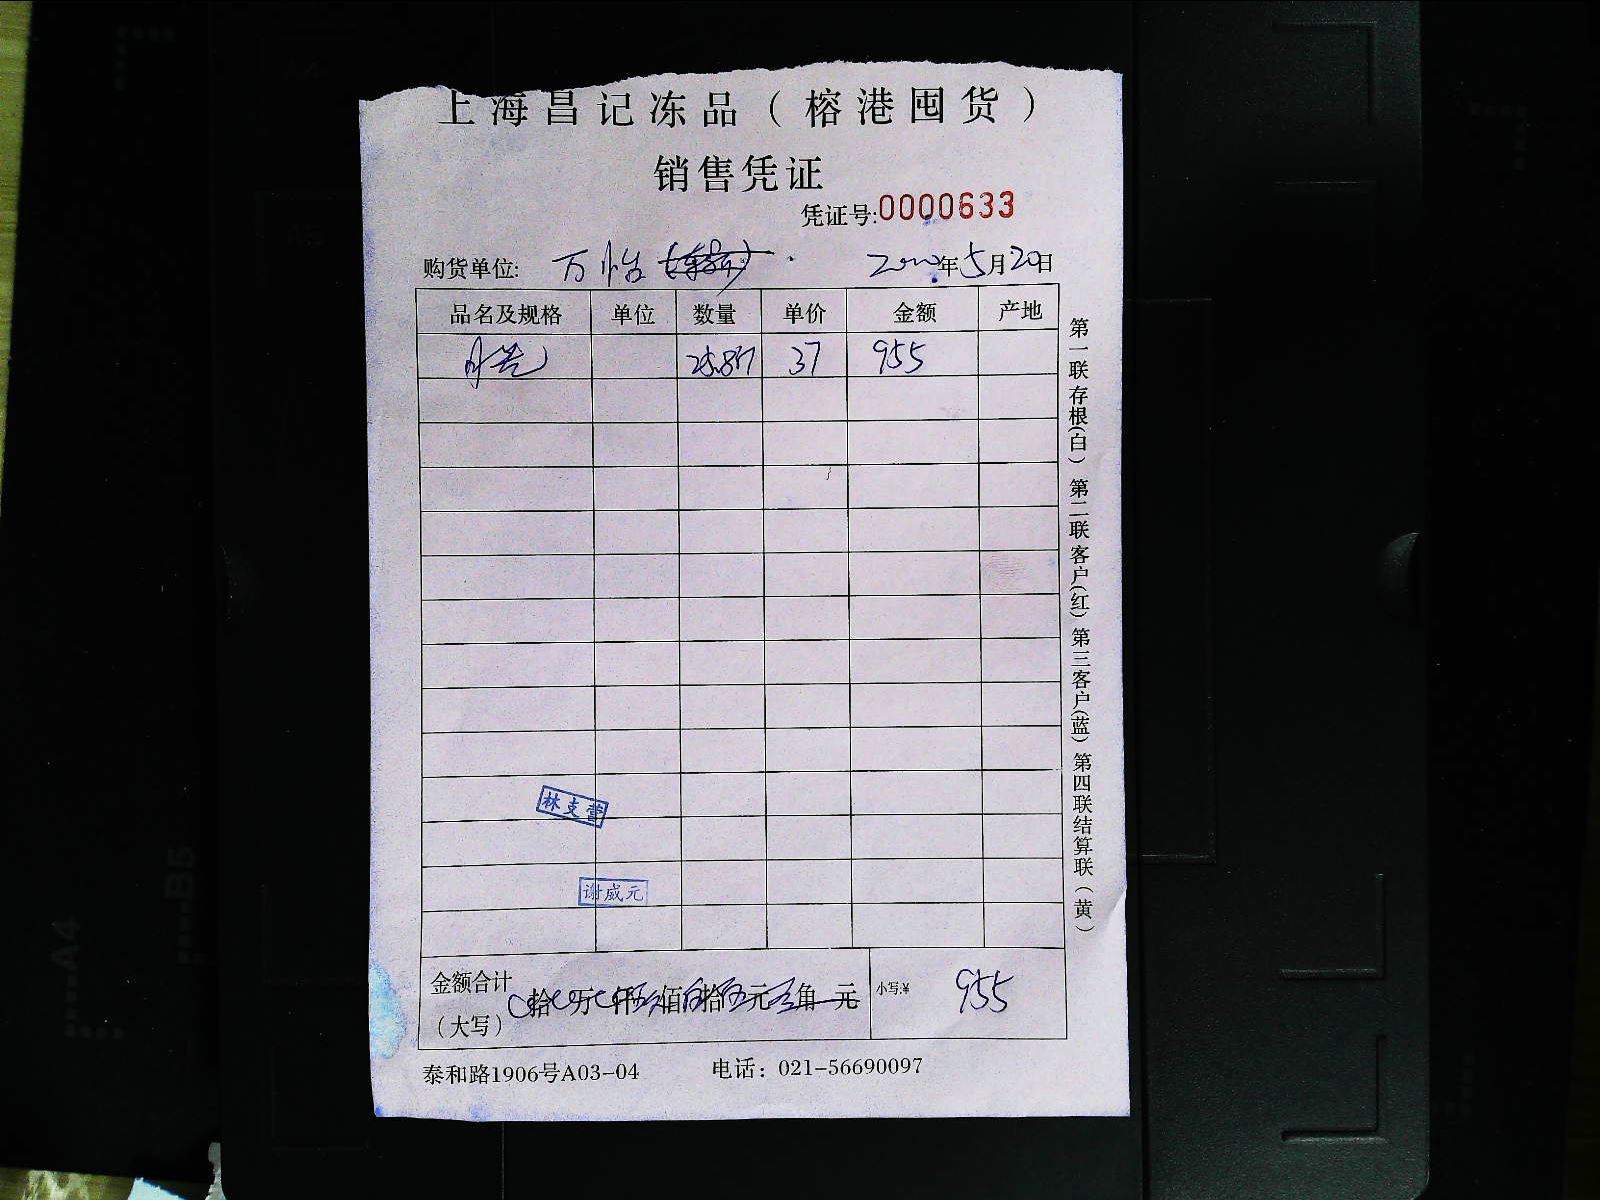 上海昌记冻品（榕港囤货）
销售凭证
凭证号:0000633
购货单位: 万怡 年5月20日
品名及规格 单位 数量 单价 金额 产地
25.8 37 955
第一联存根(白) 第二联客户(红) 第三客户(蓝) 第四联结算联(黄)
林支营
谢威元
金额合计
（大写） 拾 万 仟 佰 拾 元 角 元 小写:¥ 955
泰和路1906号A03-04 电话：021-56690097